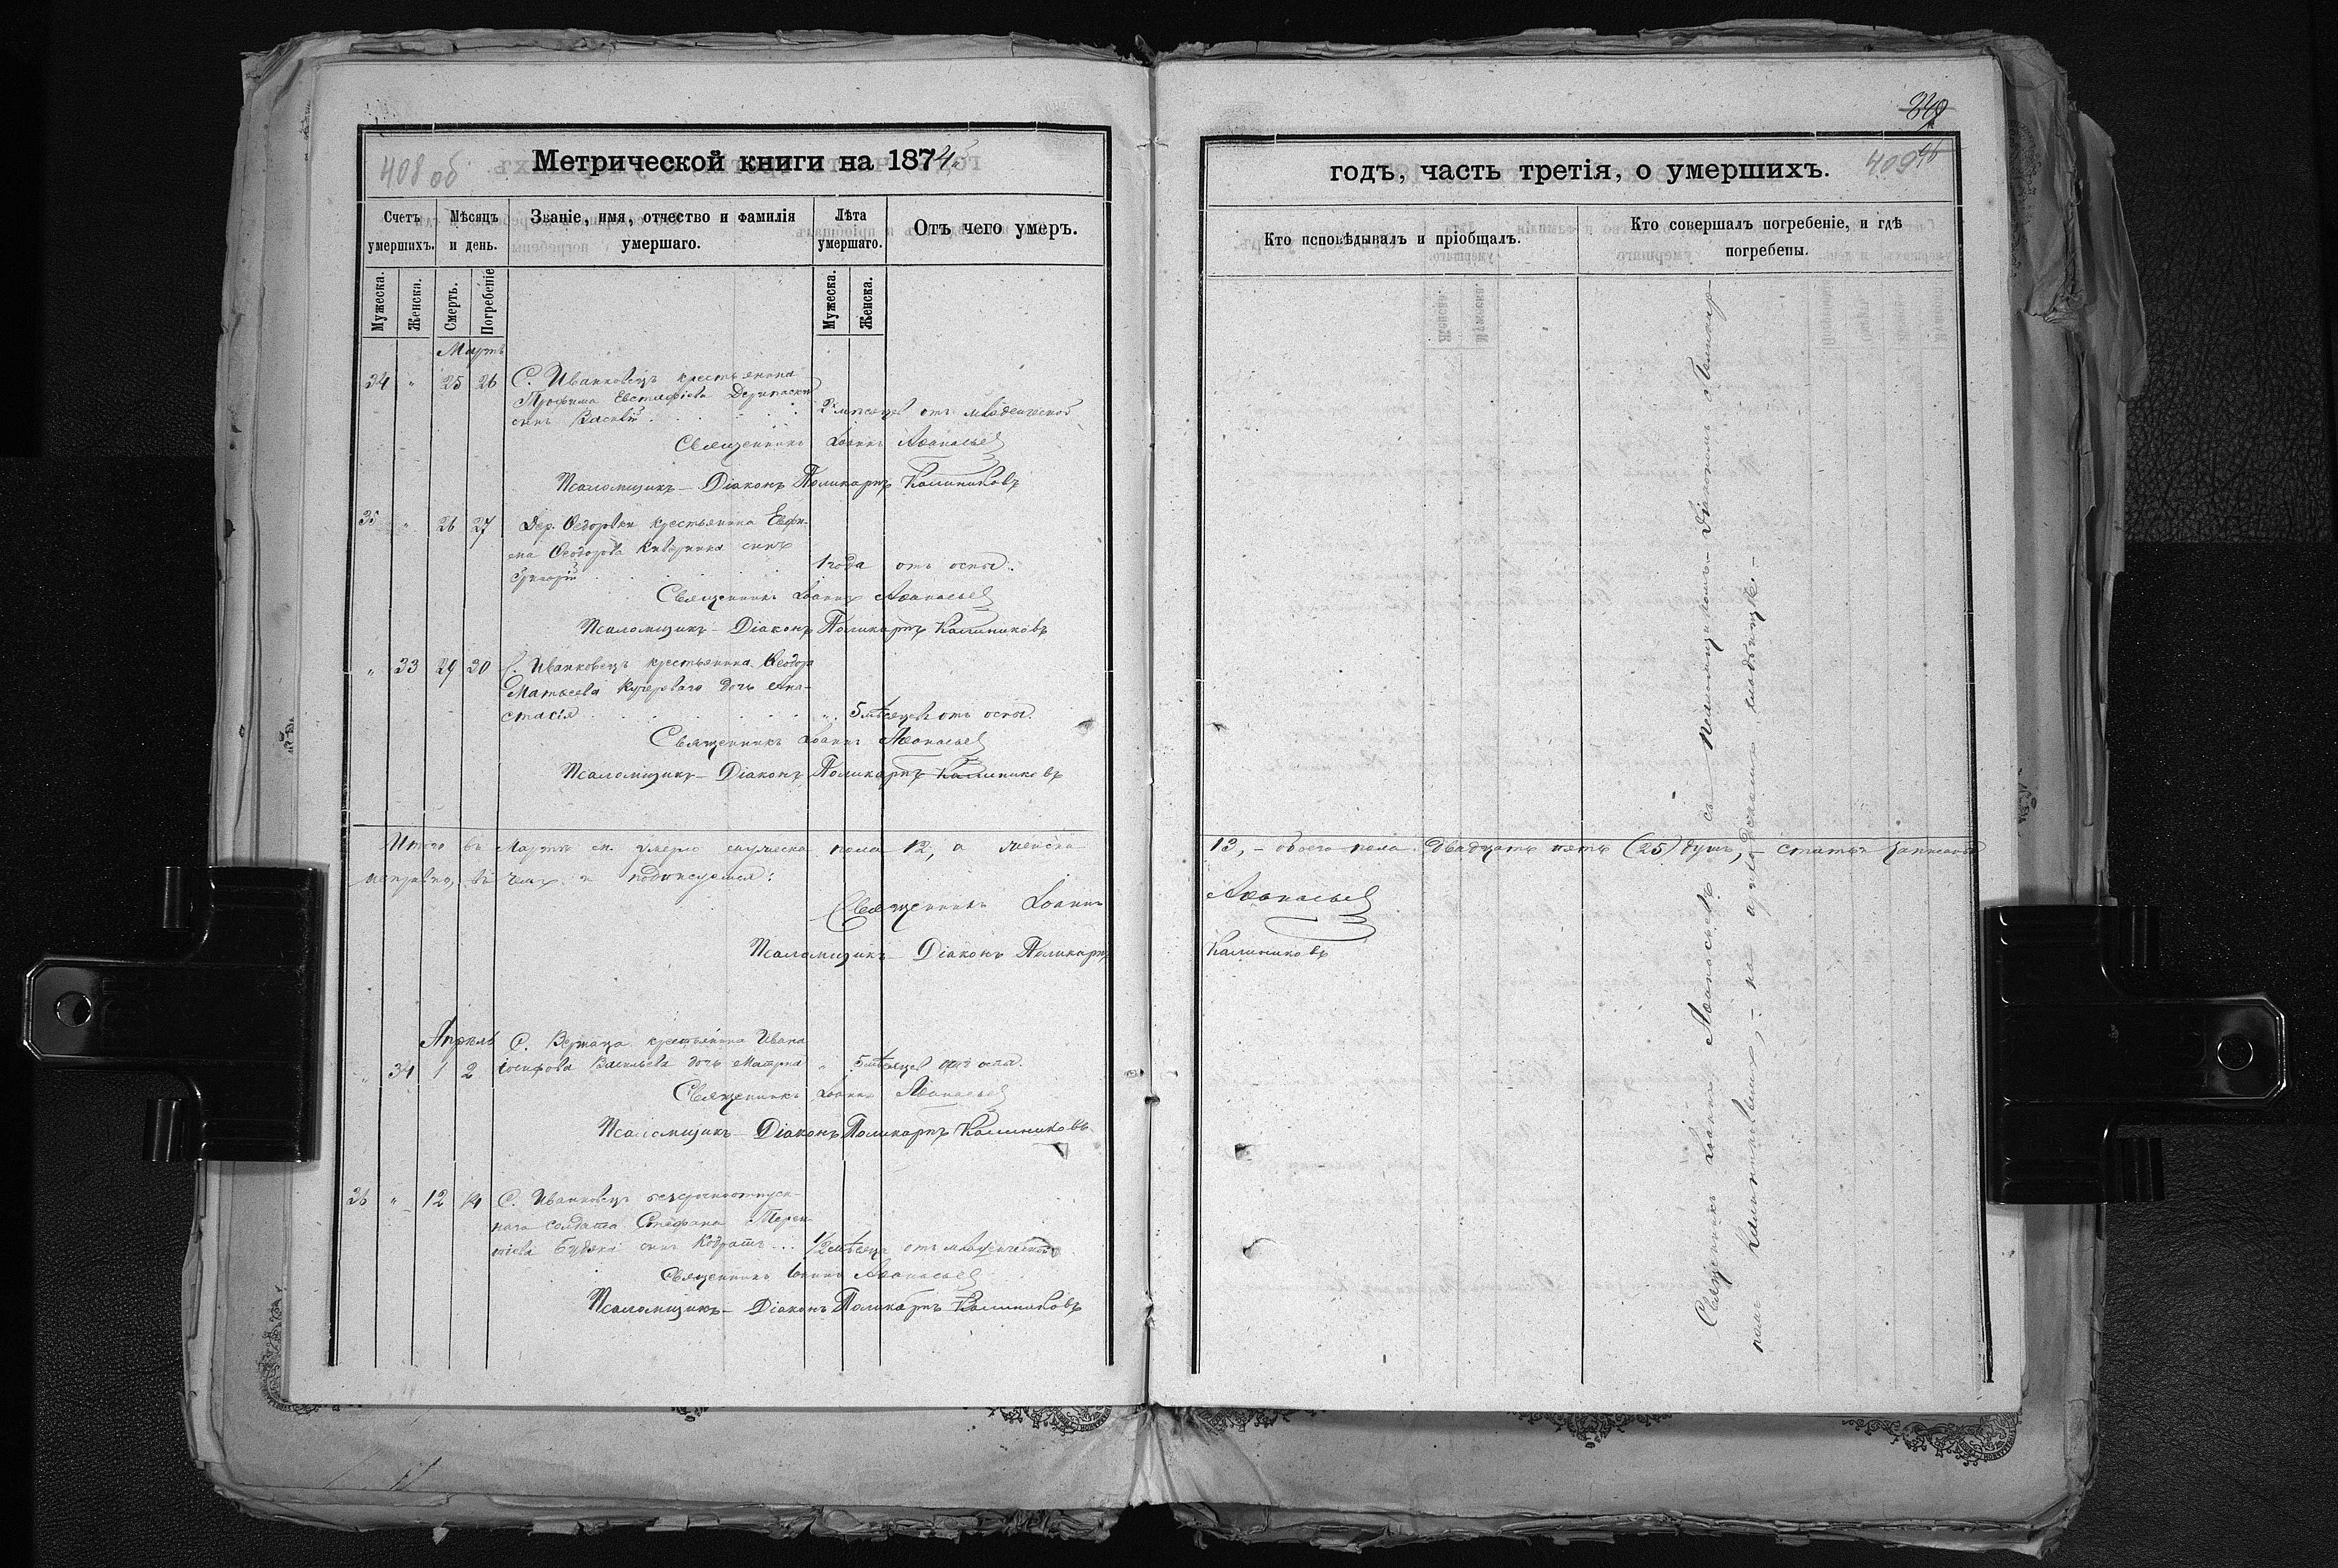 408 об
Метрической книги на 1874й
Счетъ умершихъ.
Мѣсяцъ и день.
Званіе, имя, отчество и фамилія умершаго.
Лѣта умершаго.
Отъ чего умеръ.
Мужеска.
Женска.
Смерть.
Погребеніе
Мужеска.
Женска.
Мартъ
34 " 25 26 С. Иванковецъ крестьянина
Трофима Евстафіева
сынъ Василій . 2 мѣсяцев отъ младенческой
Священникъ Іоаннъ Аѳанасьев
Псаломщикъ – Діаконъ Поликарпъ Калиниковъ
35 " 26 27 Дер. Ѳедоровки крестьянина Евфи-
ма Ѳеодорова сынъ
Григорій 1 года отъ оспы.
Священникъ Іоаннъ Аѳанасьев
Псаломщикъ – Діаконъ Поликарпъ Калиниковъ
" 33 29 30 С. Иванковецъ крестьянина Ѳеодора
Матѳеева Кучероваго дочь Ана-
стасія . . . " 5 мѣсяцев отъ оспы.
Священникъ Іоаннъ Аѳанасьев
Псаломщикъ – Діаконъ Поликарпъ Калиниковъ
Итого въ Мартѣ м. умерло мужеска пола 12, а женска
исправно, въ чемъ и подписуемся:
Священникъ Іоаннъ
Псаломщикъ – Діаконъ Поликарпъ
Апрѣль С. крестьянина Ивана
" 34 1 2 Іосифова Васильева дочь Матрона " 5 мѣсяцев отъ оспы.
Священникъ Іоаннъ Аѳанасьев
Псаломщикъ – Діаконъ Поликарпъ Калиниковъ
36 " 12 14 С. Иванковецъ безсрочноотпуск-
наго солдата Стефана Терен-
тіева сынъ Кодратъ ... 1/2 мѣсяца отъ младенческой
Священникъ Іоаннъ Аѳанасьев
Псаломщикъ – Діаконъ Поликарпъ Калиниковъ
409
годъ, часть третія, о умершихъ.
Кто исповѣдывалъ и пріобщалъ.
Кто совершалъ погребеніе, и гдѣ погребены.
13, – обоего пола двадцать пять (25) душъ, – статьи записаны
Аѳанасьев
Калиниковъ
Священникъ Іоаннъ Аѳанасьевъ съ Псаломщикомъ – Діакономъ Поликар-
помъ Калиниковымъ, – на приходскомъ кладбищѣ. –